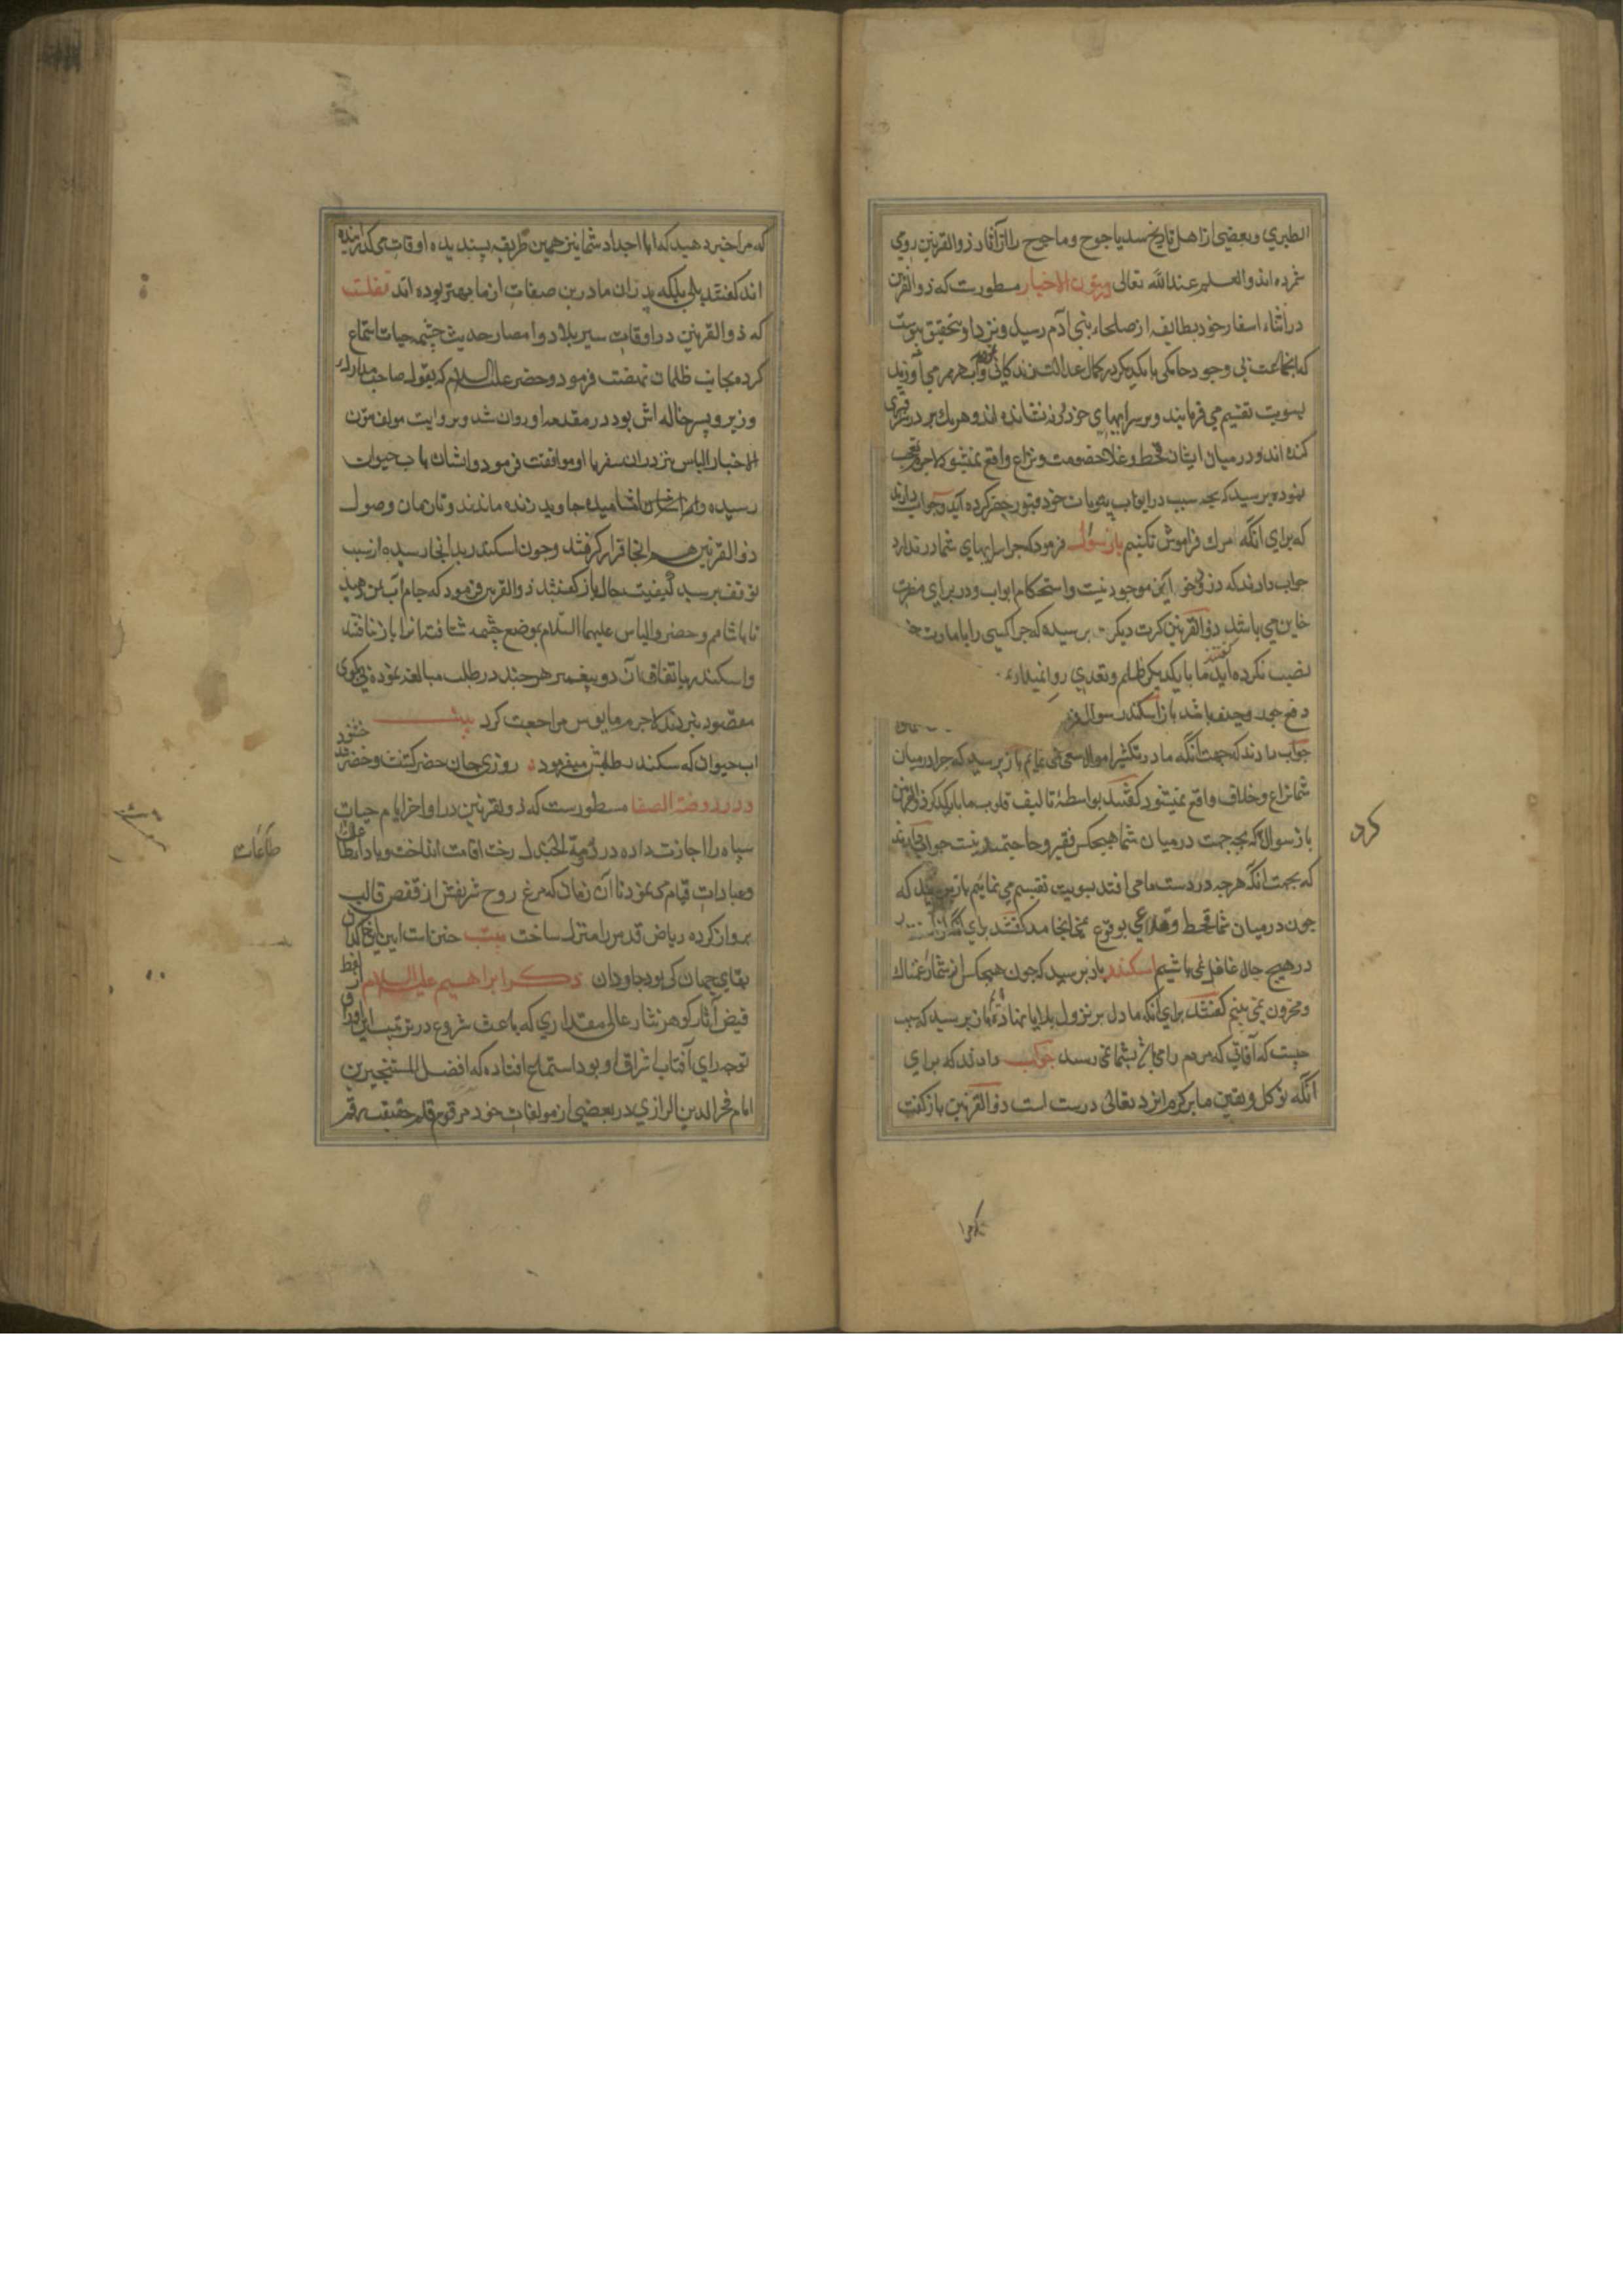 الطبري وبعضي از اهل تاريخ سد ياجوج وماجوج را از آثار ذوالقرنين رومي
شمرده اند والعلم عند الله تعالى ودر متون الاخبار مسطورست كه ذوالقرنين
در اثناء اسفار خود بطايفه از صلحاء بني آدم رسيد ونزد او بتحقيق پيوست
كه انجماعت بي وجود حاكمي با يكديكر در كمال عدالت زندكاني
بسويت تقسيم مي فرمايند وبر سرايهاي خود در ننشانده اند وهريك بر در سراى قبري
كنده اند ودر ميان ايشان قحط وغلا وخصومت ونزاع واقع نميشود لاجرم تعجب
نموده پرسيد كه بچه سبب در ابواب بيوتات خود قبور حفر كرده آيد جواب دادند
كه براي انكه مرك فراموش نكنيم باز سؤال فرمود كه چرا سرايهاي شما در ندارد
جواب دادند كه دزد وخاين موجود نيست واستحكام ابواب ودر براي مضرت
خاين مي باشد ذوالقرنين كرت ديكر پرسيد كه چرا كسي را بامارت
نصب نكرده آيد كفتند ما با يكديكر ظلم وتعدي روا نميداريم
دفع جور وحيف باشد باز اسكندر سوال
جواب دادند كه جهت آنكه ما در تكثير اموال سعي نمي نمايم باز پرسيد كه چرا در ميان
شما نزاع وخلاف واقع نميشود كفتند بواسطۀ تاليف قلوب ما با يكديكر ذوالقرنين
باز سوال كرد كه بچه جهت در ميان شما هيچكس فقير وحاجتمند نيست جواب دادند
كه بجهت انكه هرچه در دست ما مي افتد بسويت تقسيم مي نمائيم باز پرسيد كه
چون در ميان شما قحط وغلا بوقوع نمي انجامد كفتند براي انكه از استغفار
در هيچ حال غافل نمي باشيم اسكندر باز پرسيد كه چون هيچكس از شما را غمناك
ومحزون نمي بينم كفتند براي آنكه ما دل بر نزول بلايا نهاده ايم باز پرسيد كه سبب
چيست كه آفاتي كه مردم را مي بشما نمي رسد جواب دادند كه براي
آنكه توكل ويقين ما بر كرم ايزد تعالى درست است ذوالقرنين باز كفت
كرد
كه مرا خبر دهيد كه ابا اجداد شما نيز همين طريقه پسنديده اوقات مي كذرانيده
اند كفتند بلى بلكه پدران ما در ين صفات از ما بهتر بوده اند نقلست
كه ذوالقرنين در اوقات سير بلاد وامصار حديث چشمه حيات استماع
كرده بجانب ظلمات نهضت فرمود وحضر عليه السلام كه بقول صاحب مدارك
وزير وپسر خاله اش بود در مقدمه او روان شد وبروايت مولف متون
الاخبار الياس نيز در ان سفر با او موافقت فرمود وايشان باب حيوان
رسيده واز اشاميده جاويد زنده ماندند وتا زمان وصول
ذوالقرنين هم انجا قرار كرفتند وچون اسكندر بدانجا رسيده از سبب
توقف پرسيد كيفيت حال باز كفتند ذوالقرنين فرمود كه جام آب بمن دهيد
تا بياشامم وحضر والياس عليهما السلام بموضع چشمه شتافته انرا باز نيافتند
واسكندر باتفاق آن دو پيغمبر هر چند در طلب مبالغه نموده پي بكوى
مقصود نبردند لاجرم مايوس مراجعت كرد بيت
اب حيوان كه سكندر طلبش ميفرمود روزى جان حضر كشت وحضر خشنود شد
در روضة الصفا مسطورست كه ذوالقرنين در اواخر ايام حيات
سپاه را اجازت داده در دومة الجندل رخت اقامت انداخت وبادا طاعات
وعبادات قيام مى نمود تا آن زمان كه مرغ روح شريفش از قفص قالب
پرواز كرده رياض قدس را منزل ساخت بيت چنين است اين باغ
بقاي جهان كى بود جاودان ذكر ابراهيم عليه السلام از لفظ
فيض آثار كوهر نثار عالى مقداري كه باعث شروع در ترتيب اين اوراق
توجه راي آفتاب اشراق او بود استماع افتاده كه افضل المتبحرين
امام فخر الدين الرازي در بعضي از مولفات خود مرقوم قلم حقيقت رقم
طاعات